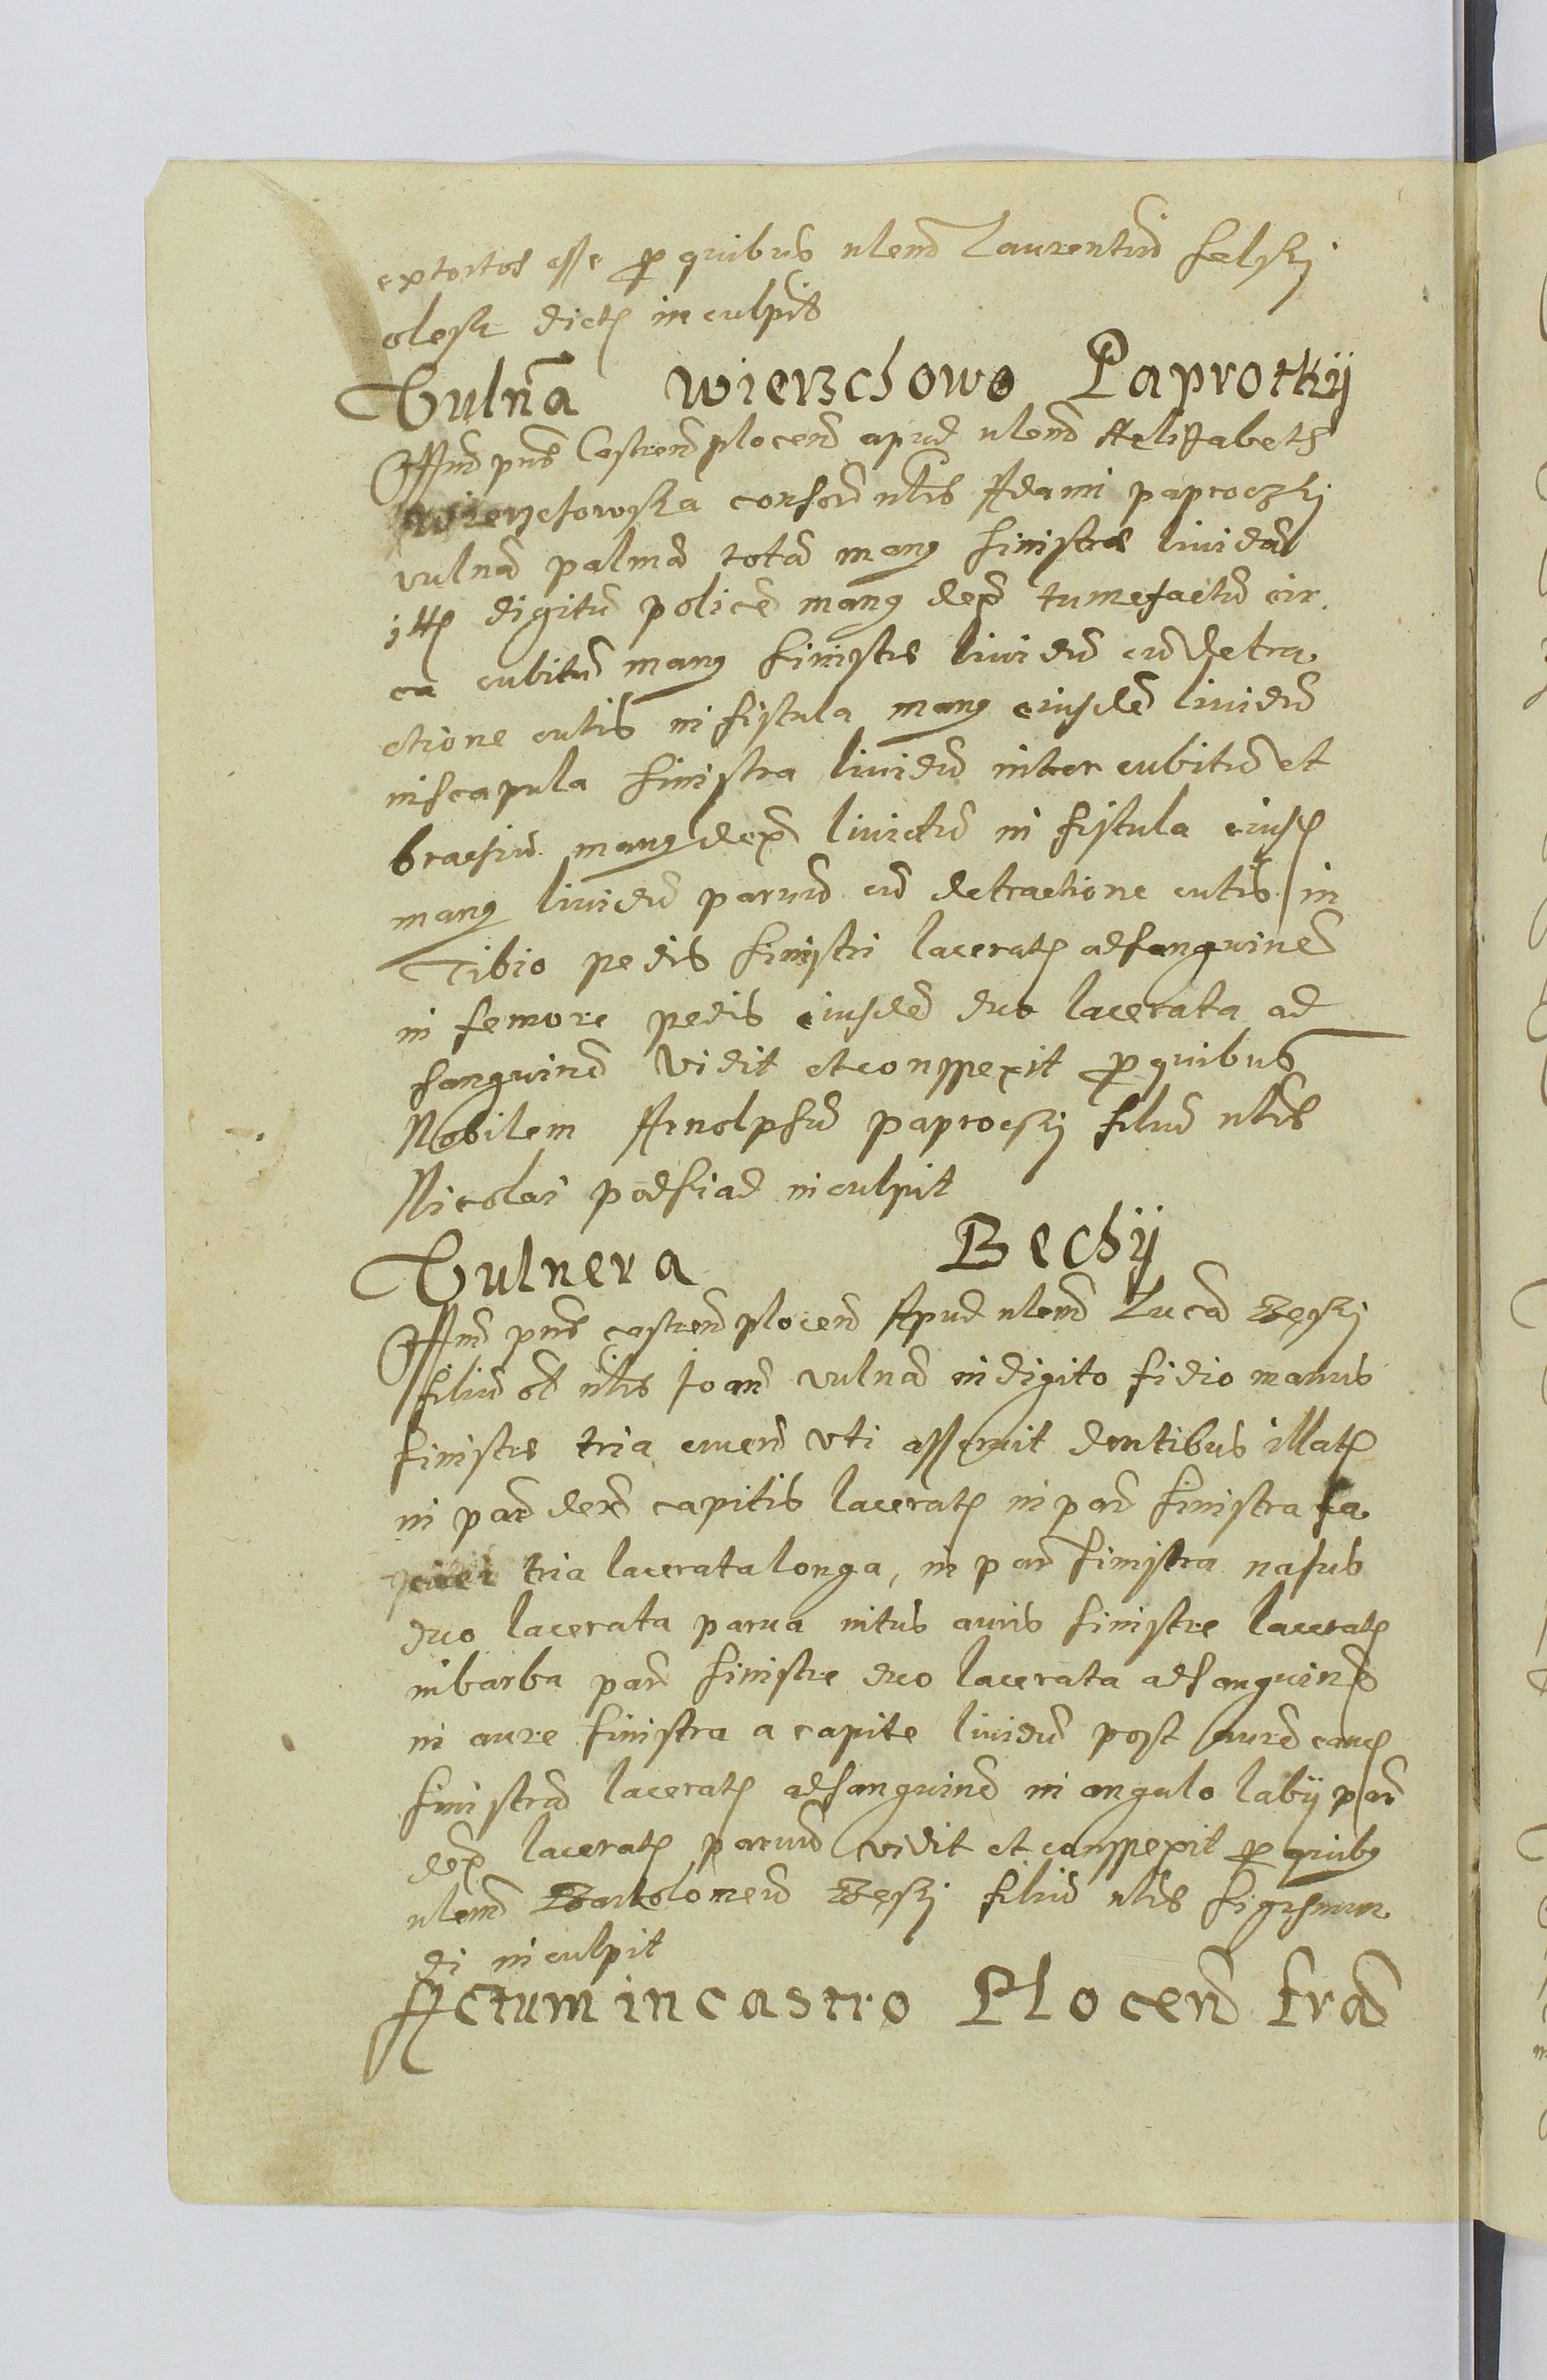 extortos esse ꝓ quibus nlem̃ Laurentiũ felskj
olesk dictꝭ inculpãs
Vulnã Wierzchowo Paprotkÿ
Offm̃ pñs Castreñ plocen̄ apud nlem̃ Helizabeth
Wierzchowska consor̃ nlis Adami paproczkj
vulnã palmã totã manꝰ sinistræ liuidã
ittꝭ digitũ policẽ manꝰ dex̃ tumefactũ cir.
ca cubitũ manꝰ sinistrę liuidũ cũ detra.
ctione cutis in fistula manꝰ eiusdẽ liuidũ
in scapula sinistra liuidũ inter cubitũ et
brachiũ manꝰ dex̃ liuidũ in fistula eiusdꝭ
manꝰ liuidũ paruũ cũ detractione cutis in
Tibio pedis sinistri laceratꝭ ad sanguinẽ
in femore pedis eiusdẽ duo lacerata ad
sanguinẽ vidit et conspexit ꝓ quibus
Nobilem Arnolphũ paprockj filiũ nlis
Nicolai inculpit
Vulnera Bechÿ
Offm̃ pñs castren̄ plocen̄ Apud nlem̃ Lucã Bęskj
filiũ ol̃ nlis Joan̄ vulnã in digito fidio manus
sinistrę tria cruen̄ vti asseruit dentibus illatꝭ
in par̃ dex̃ capitis laceratꝭ in par̃ sinistra fa
tria lacerata longa, in par̃ sinistra nasus
duo lacerata parua intus auris sinistre laceratꝭ
in barba par̃ sinistre duo lacerata ad sanguinẽ
in aure sinistra a capite liuidũ post aurẽ eandꝭ
sinistrã laceratꝭ ad sanguinẽ in angulo labÿ par̃
dex̃ laceratꝭ paruũ vidit et conspexit ꝓ quibꝰ
nlem̃ Bartolomeũ Bęskj filiũ nlis sigismun.
di inculpit
Actum in castro Plocen̄ frã